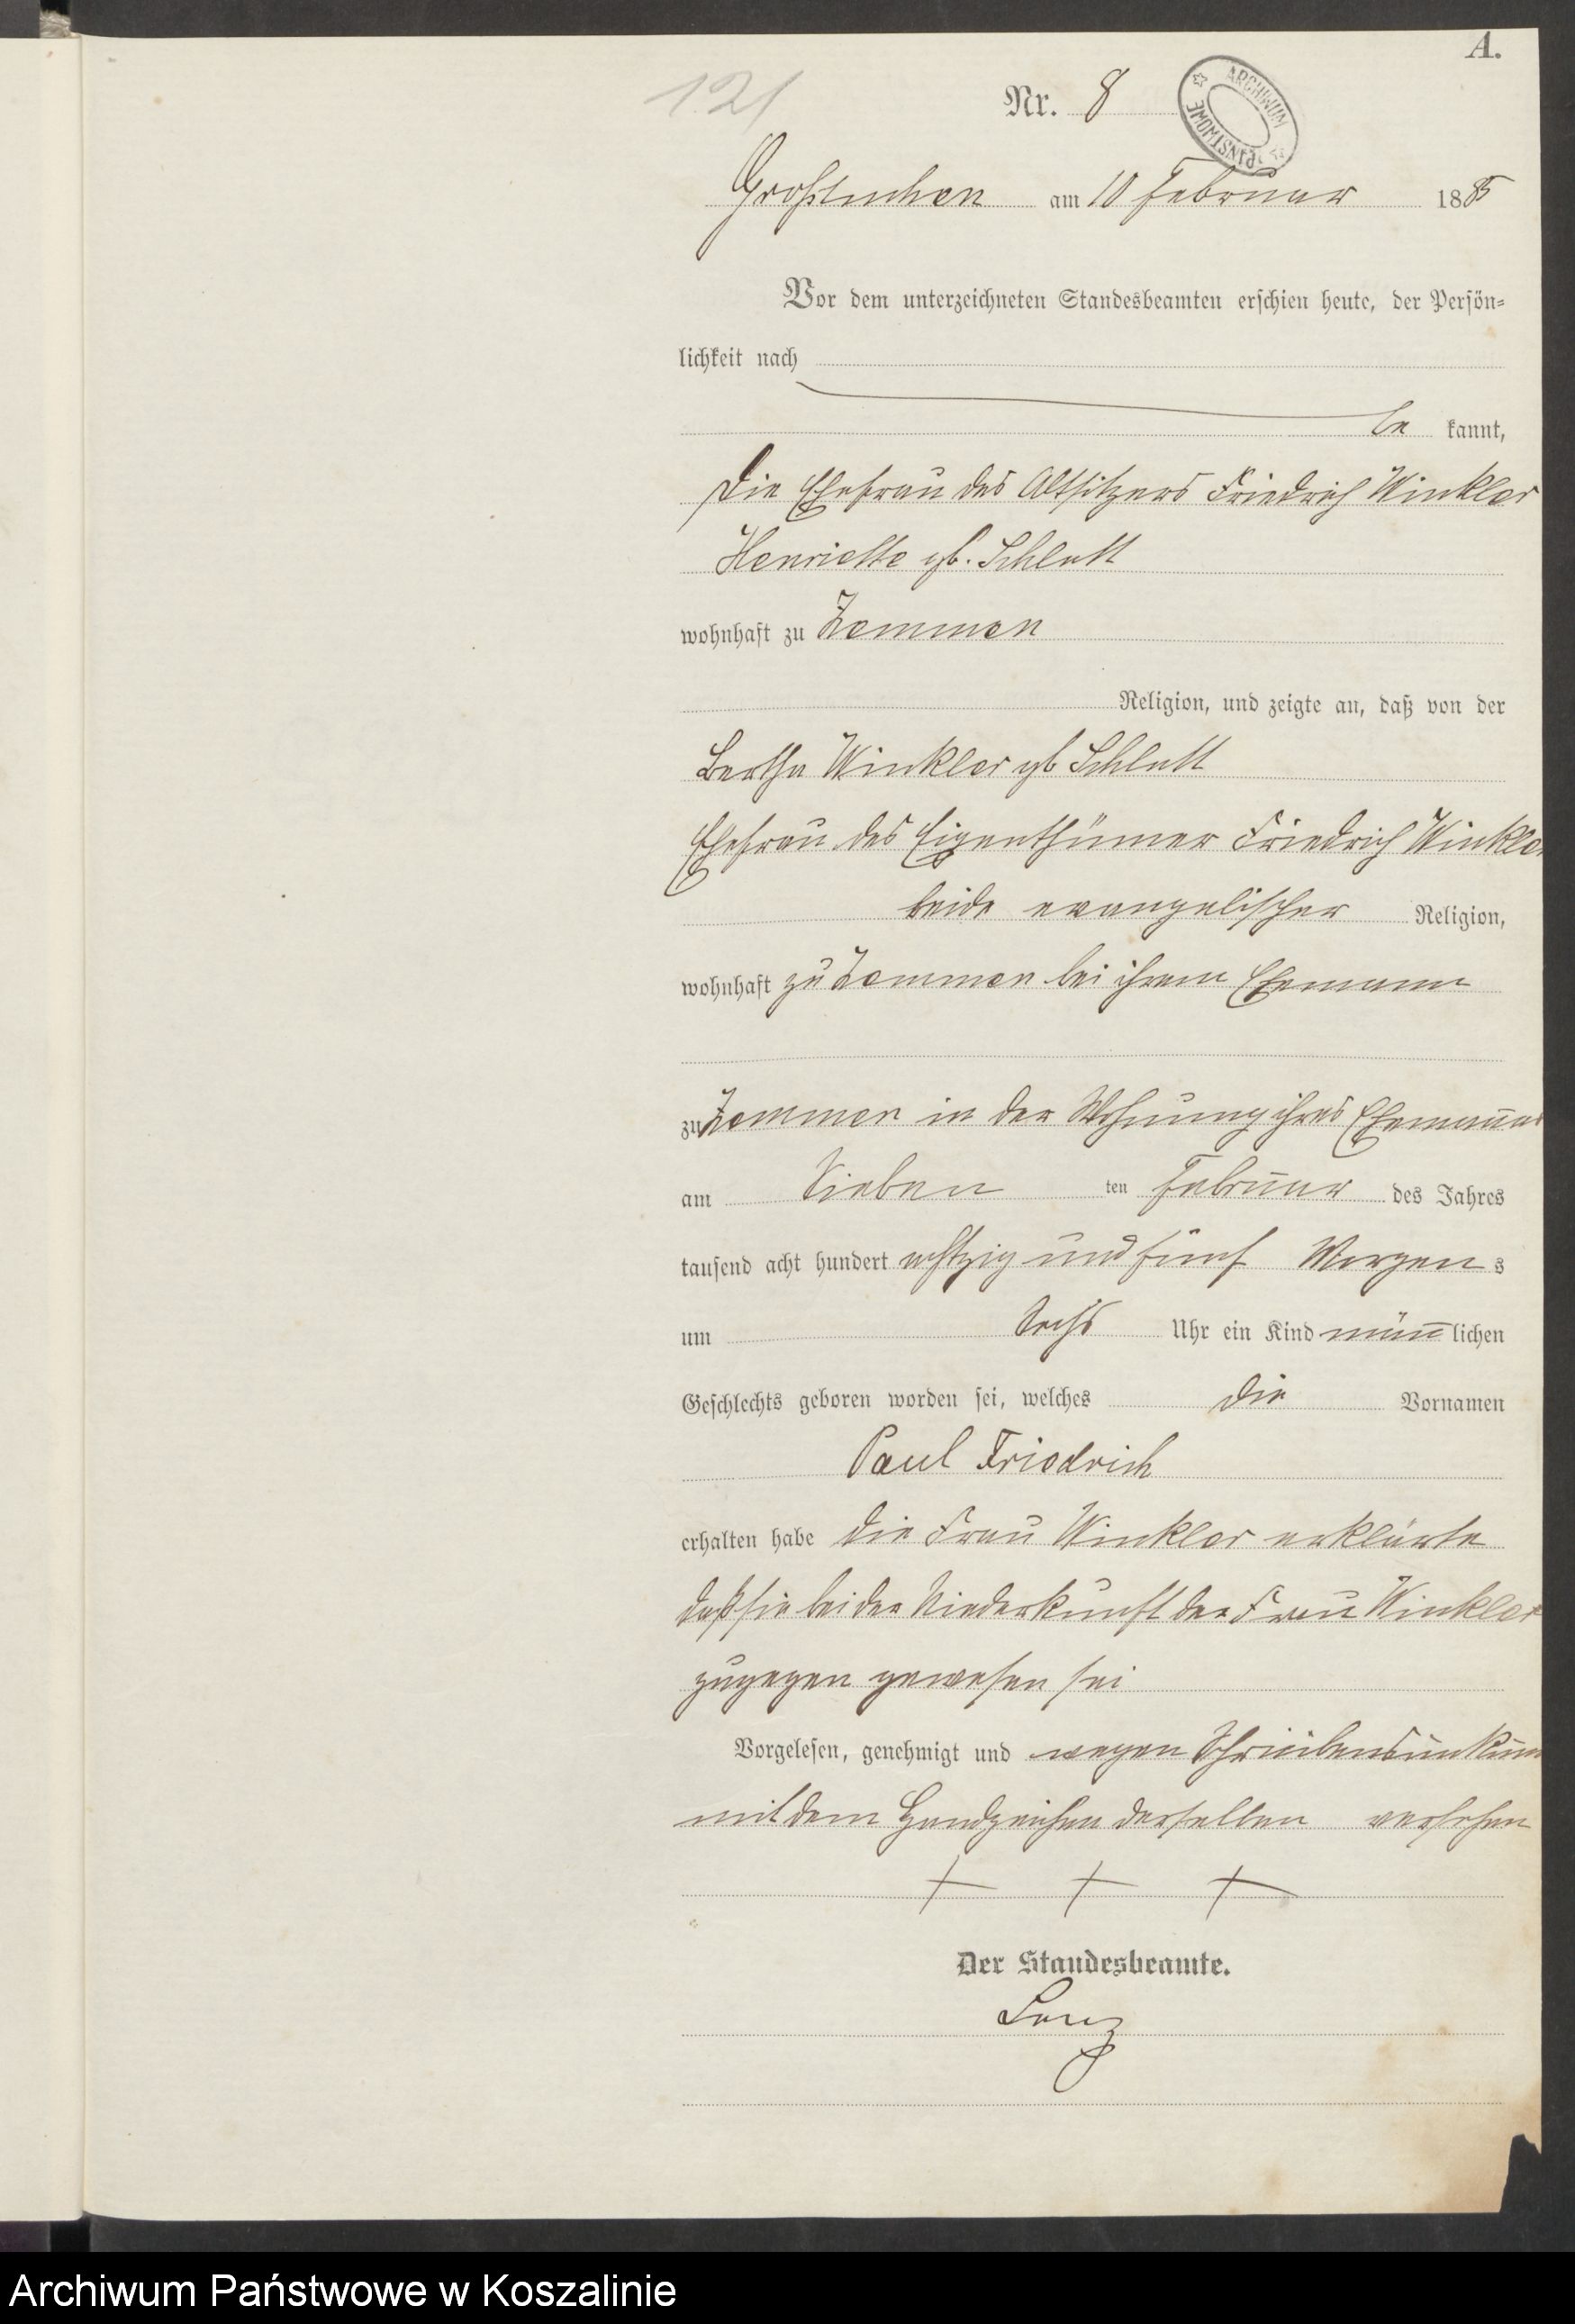 A.
121
Nr. 8
ARCHIWUM PAŃSTWOWE
Großtuchen am 10 Februar 1885
Vor dem unterzeichneten Standesbeamten erschien heute, der Persön-
lichkeit nach
be kannt,
die Ehefrau des Altsitzers Friedrich Winkler
Henriette gb. Schlutt
wohnhaft zu Zemmen
Religion, und zeigte an, daß von der
Bertha Winkler gb Schlutt
Ehefrau des Eigenthümer Friedrich Winkler
beide evangelischer Religion,
wohnhaft zu Zemmen bei ihrem Ehemann
zu Zemmen in der Wohnung ihres Ehemannes
am Sieben ten Februar des Jahres
tausend acht hundert achtzig und fünf Morgen s
um Sechs Uhr ein Kind männlichen
Geschlechts geboren worden sei, welches die Vornamen
Paul Friedrich
erhalten habe die Frau Winkler erklärte
daß sie bei der Niederkunft der Frau Winkler
zugegen gewesen sei
Vorgelesen, genehmigt und wegen
mit dem Handzeichen derselben versehen
+ + +
Der Standesbeamte.
Lenz
Archiwum Państwowe w Koszalinie